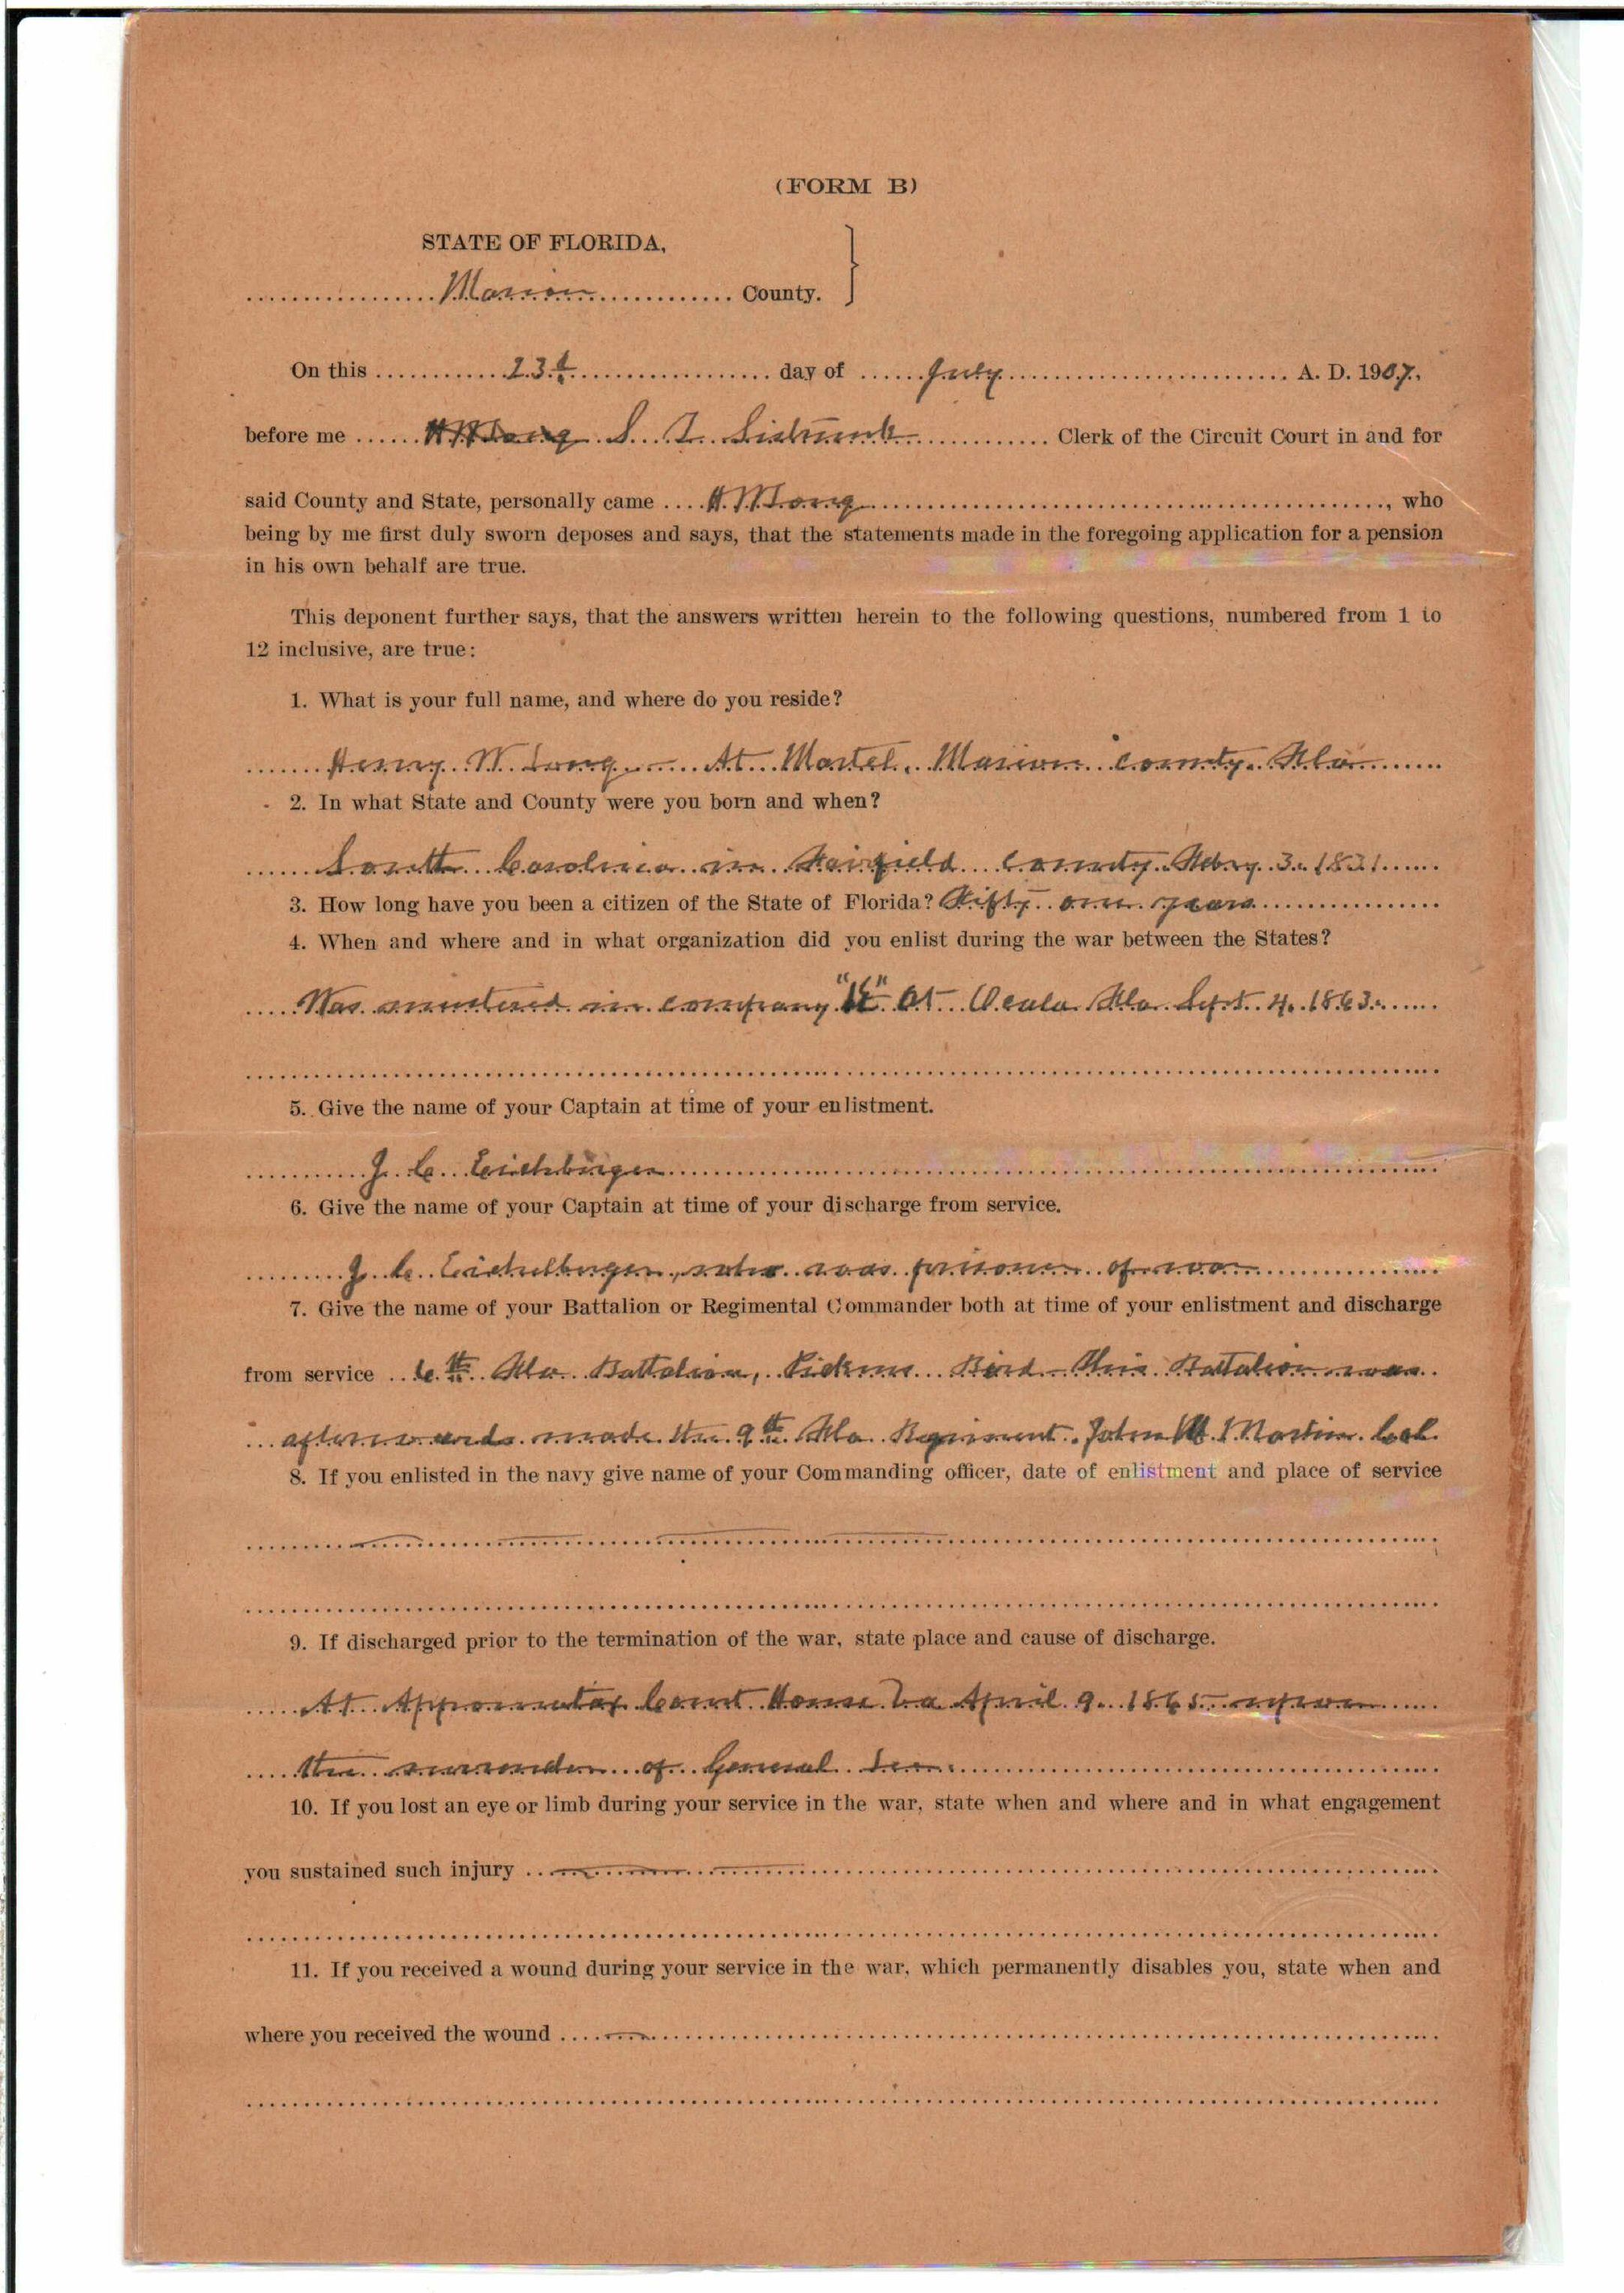 (FORM B)
STATE OF FLORIDA,
Marion County.
On this 23d day of July A. D. 1907,
before me S. T. Sistrunk Clerk of the Circuit Court in and for
said County and State, personally came H. W. Long, who
being by me first duly sworn deposes and says, that the statements made in the foregoing application for a pension
in his own behalf are true.
This deponent further says, that the answers written herein to the following questions, numbered from 1 to
12 inclusive, are true:
1. What is your full name, and where do you reside?
Henry W. Long — At Martel, Marion County. Fla
2. In what State and County were you born and when?
South Carolina in Fairfield County. Feby. 3. 1831
3. How long have you been a citizen of the State of Florida? Fifty one years
4. When and where and in what organization did you enlist during the war between the States?
Was mustered in company At Ocala Fla Sept. 4. 1863.
5. Give the name of your Captain at time of your enlistment.
J. C. Eichelbirger
6. Give the name of your Captain at time of your discharge from service.
J. C. Eichelberger, who was prisoner of war
7. Give the name of your Battalion or Regimental Commander both at time of your enlistment and discharge
from service 6th Fla Battalion, Pickens Bird — This Battalion was
afterwards made the 9th Fla Regiment. John M Martin Col.
8. If you enlisted in the navy give name of your Commanding officer, date of enlistment and place of service
9. If discharged prior to the termination of the war, state place and cause of discharge.
At Appomatax Court House Va April 9. 1865 upon
the surrender of General Lee.
10. If you lost an eye or limb during your service in the war, state when and where and in what engagement
you sustained such injury
11. If you received a wound during your service in the war, which permanently disables you, state when and
where you received the wound